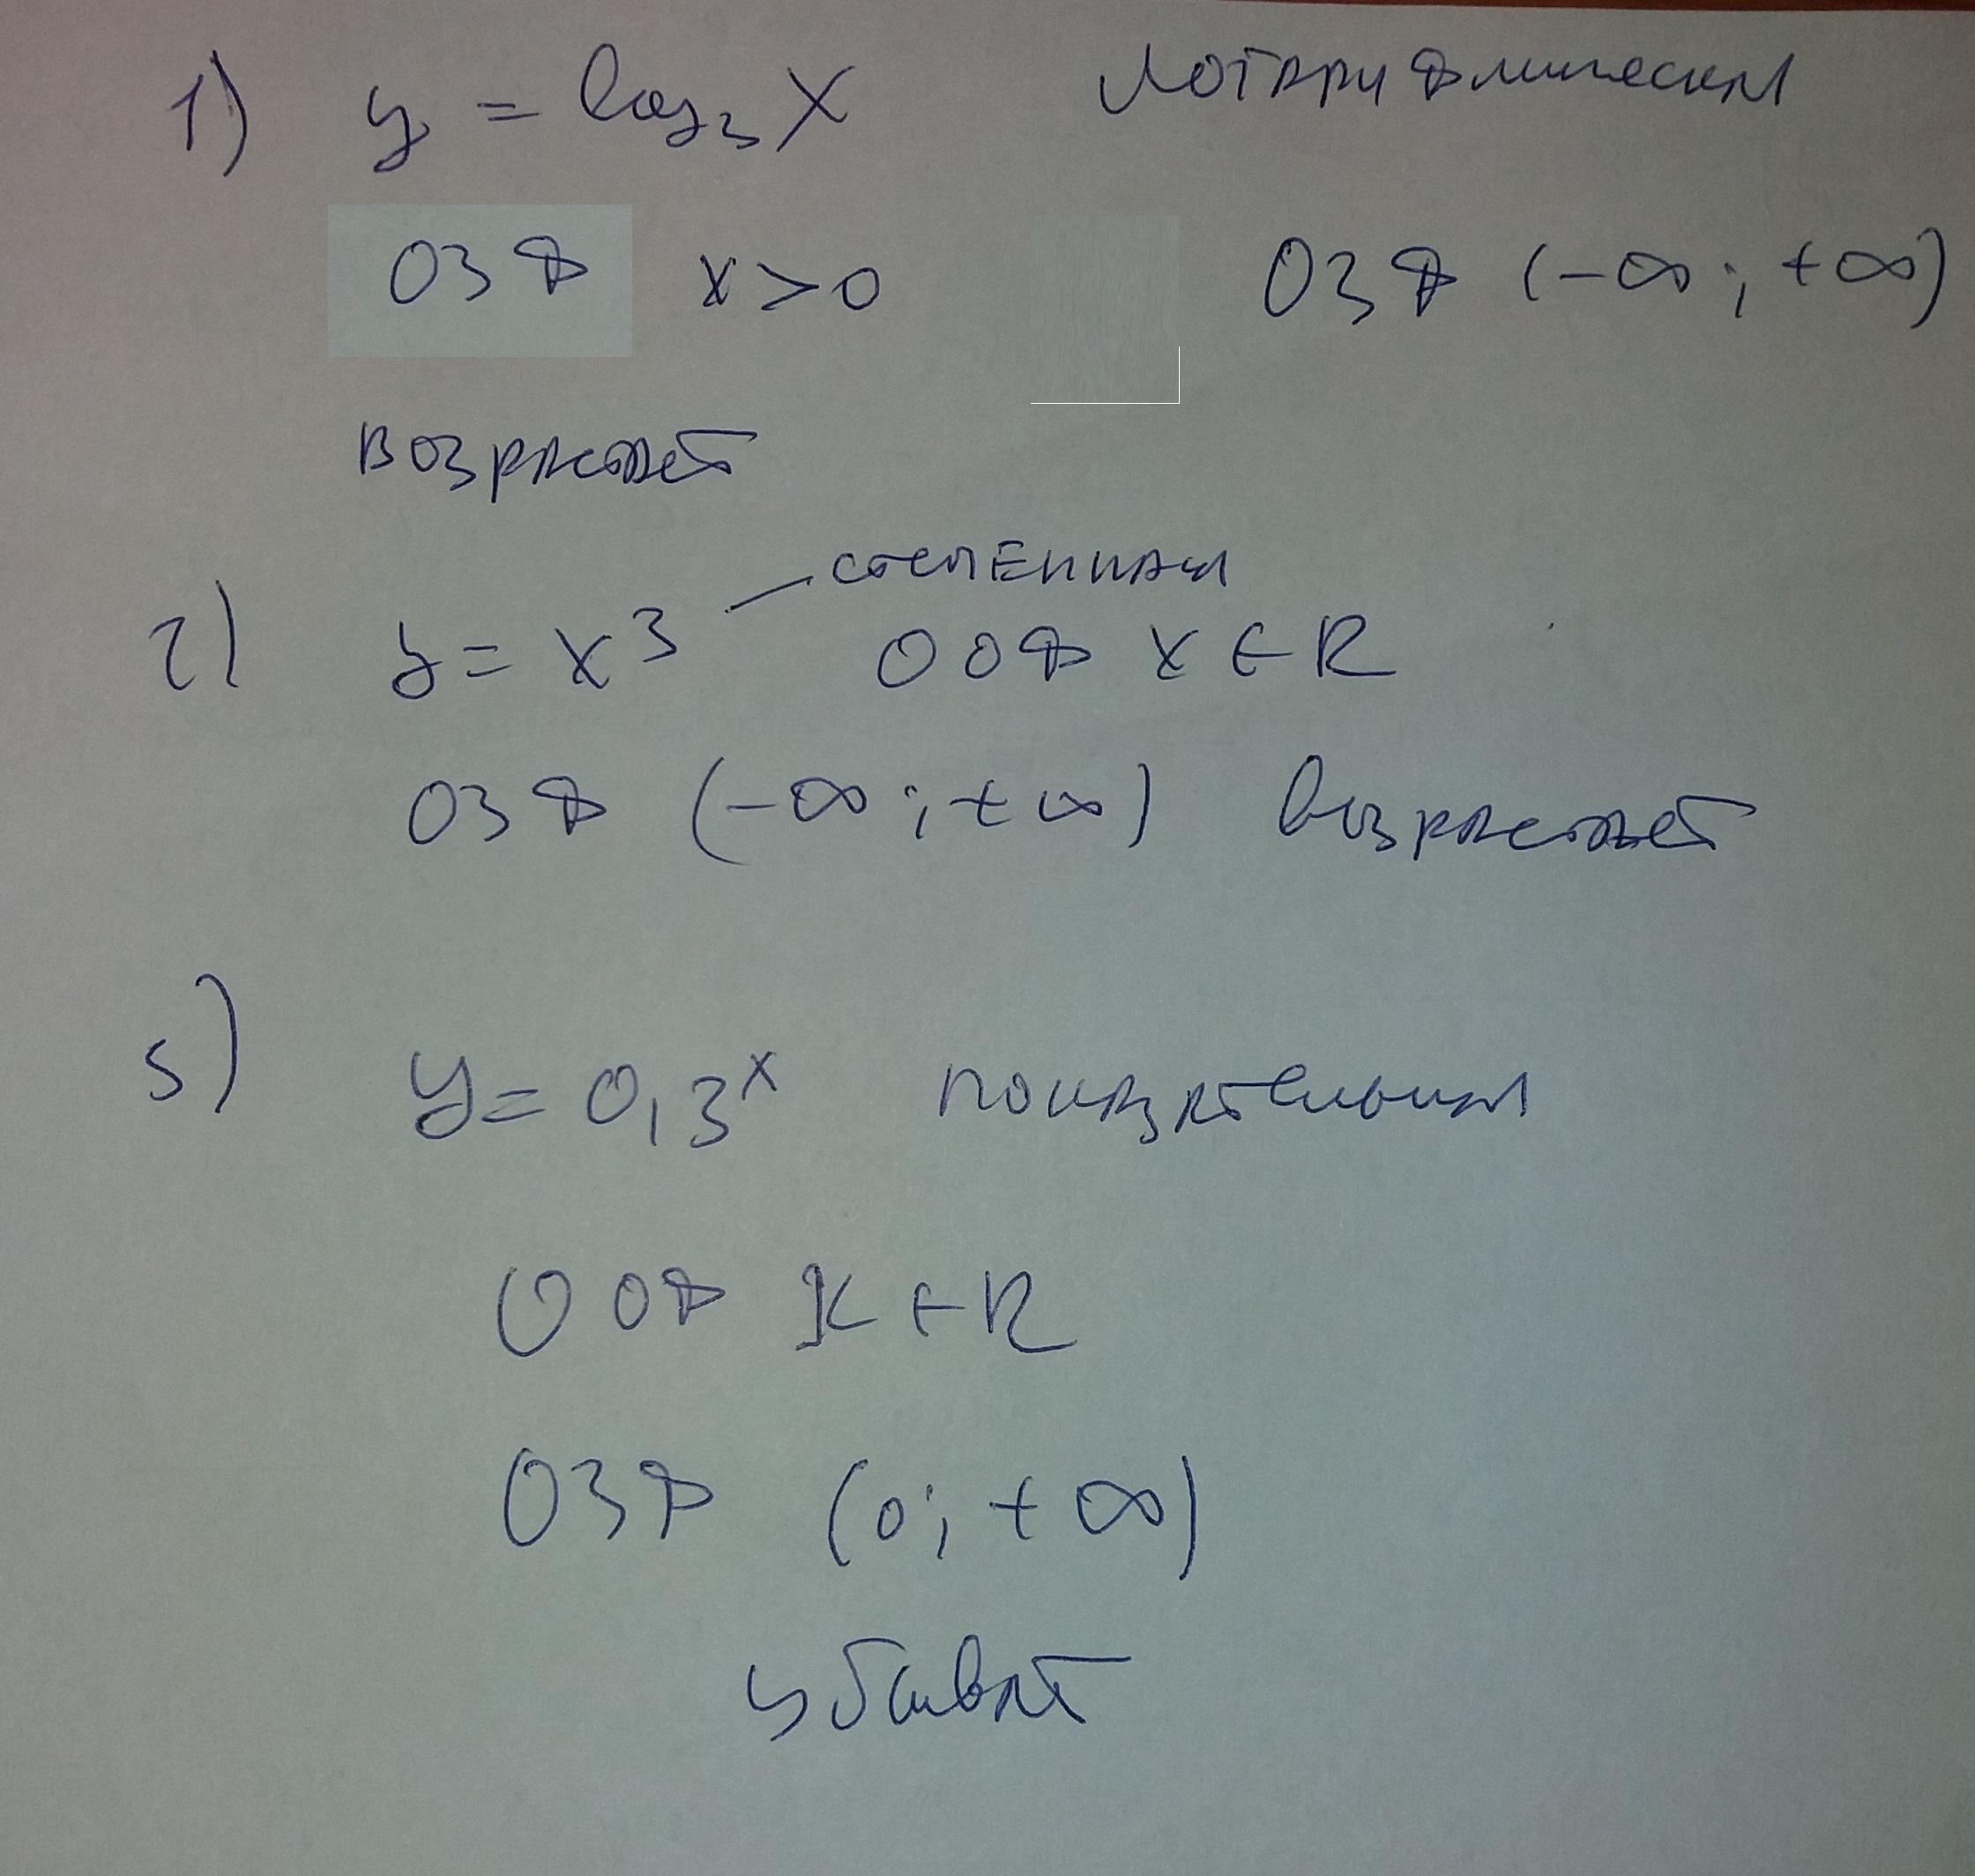 1) y = log₃ X логарифмическая
ОЗФ x>0 ОЗФ (-∞; +∞)
возрастает
степенная
2) y = x³ ООФ x ∈ R
ОЗФ (-∞; +∞) возрастает
3) y = 0,3ˣ показательная
ООФ x ∈ R
ОЗФ (0; +∞)
убывает